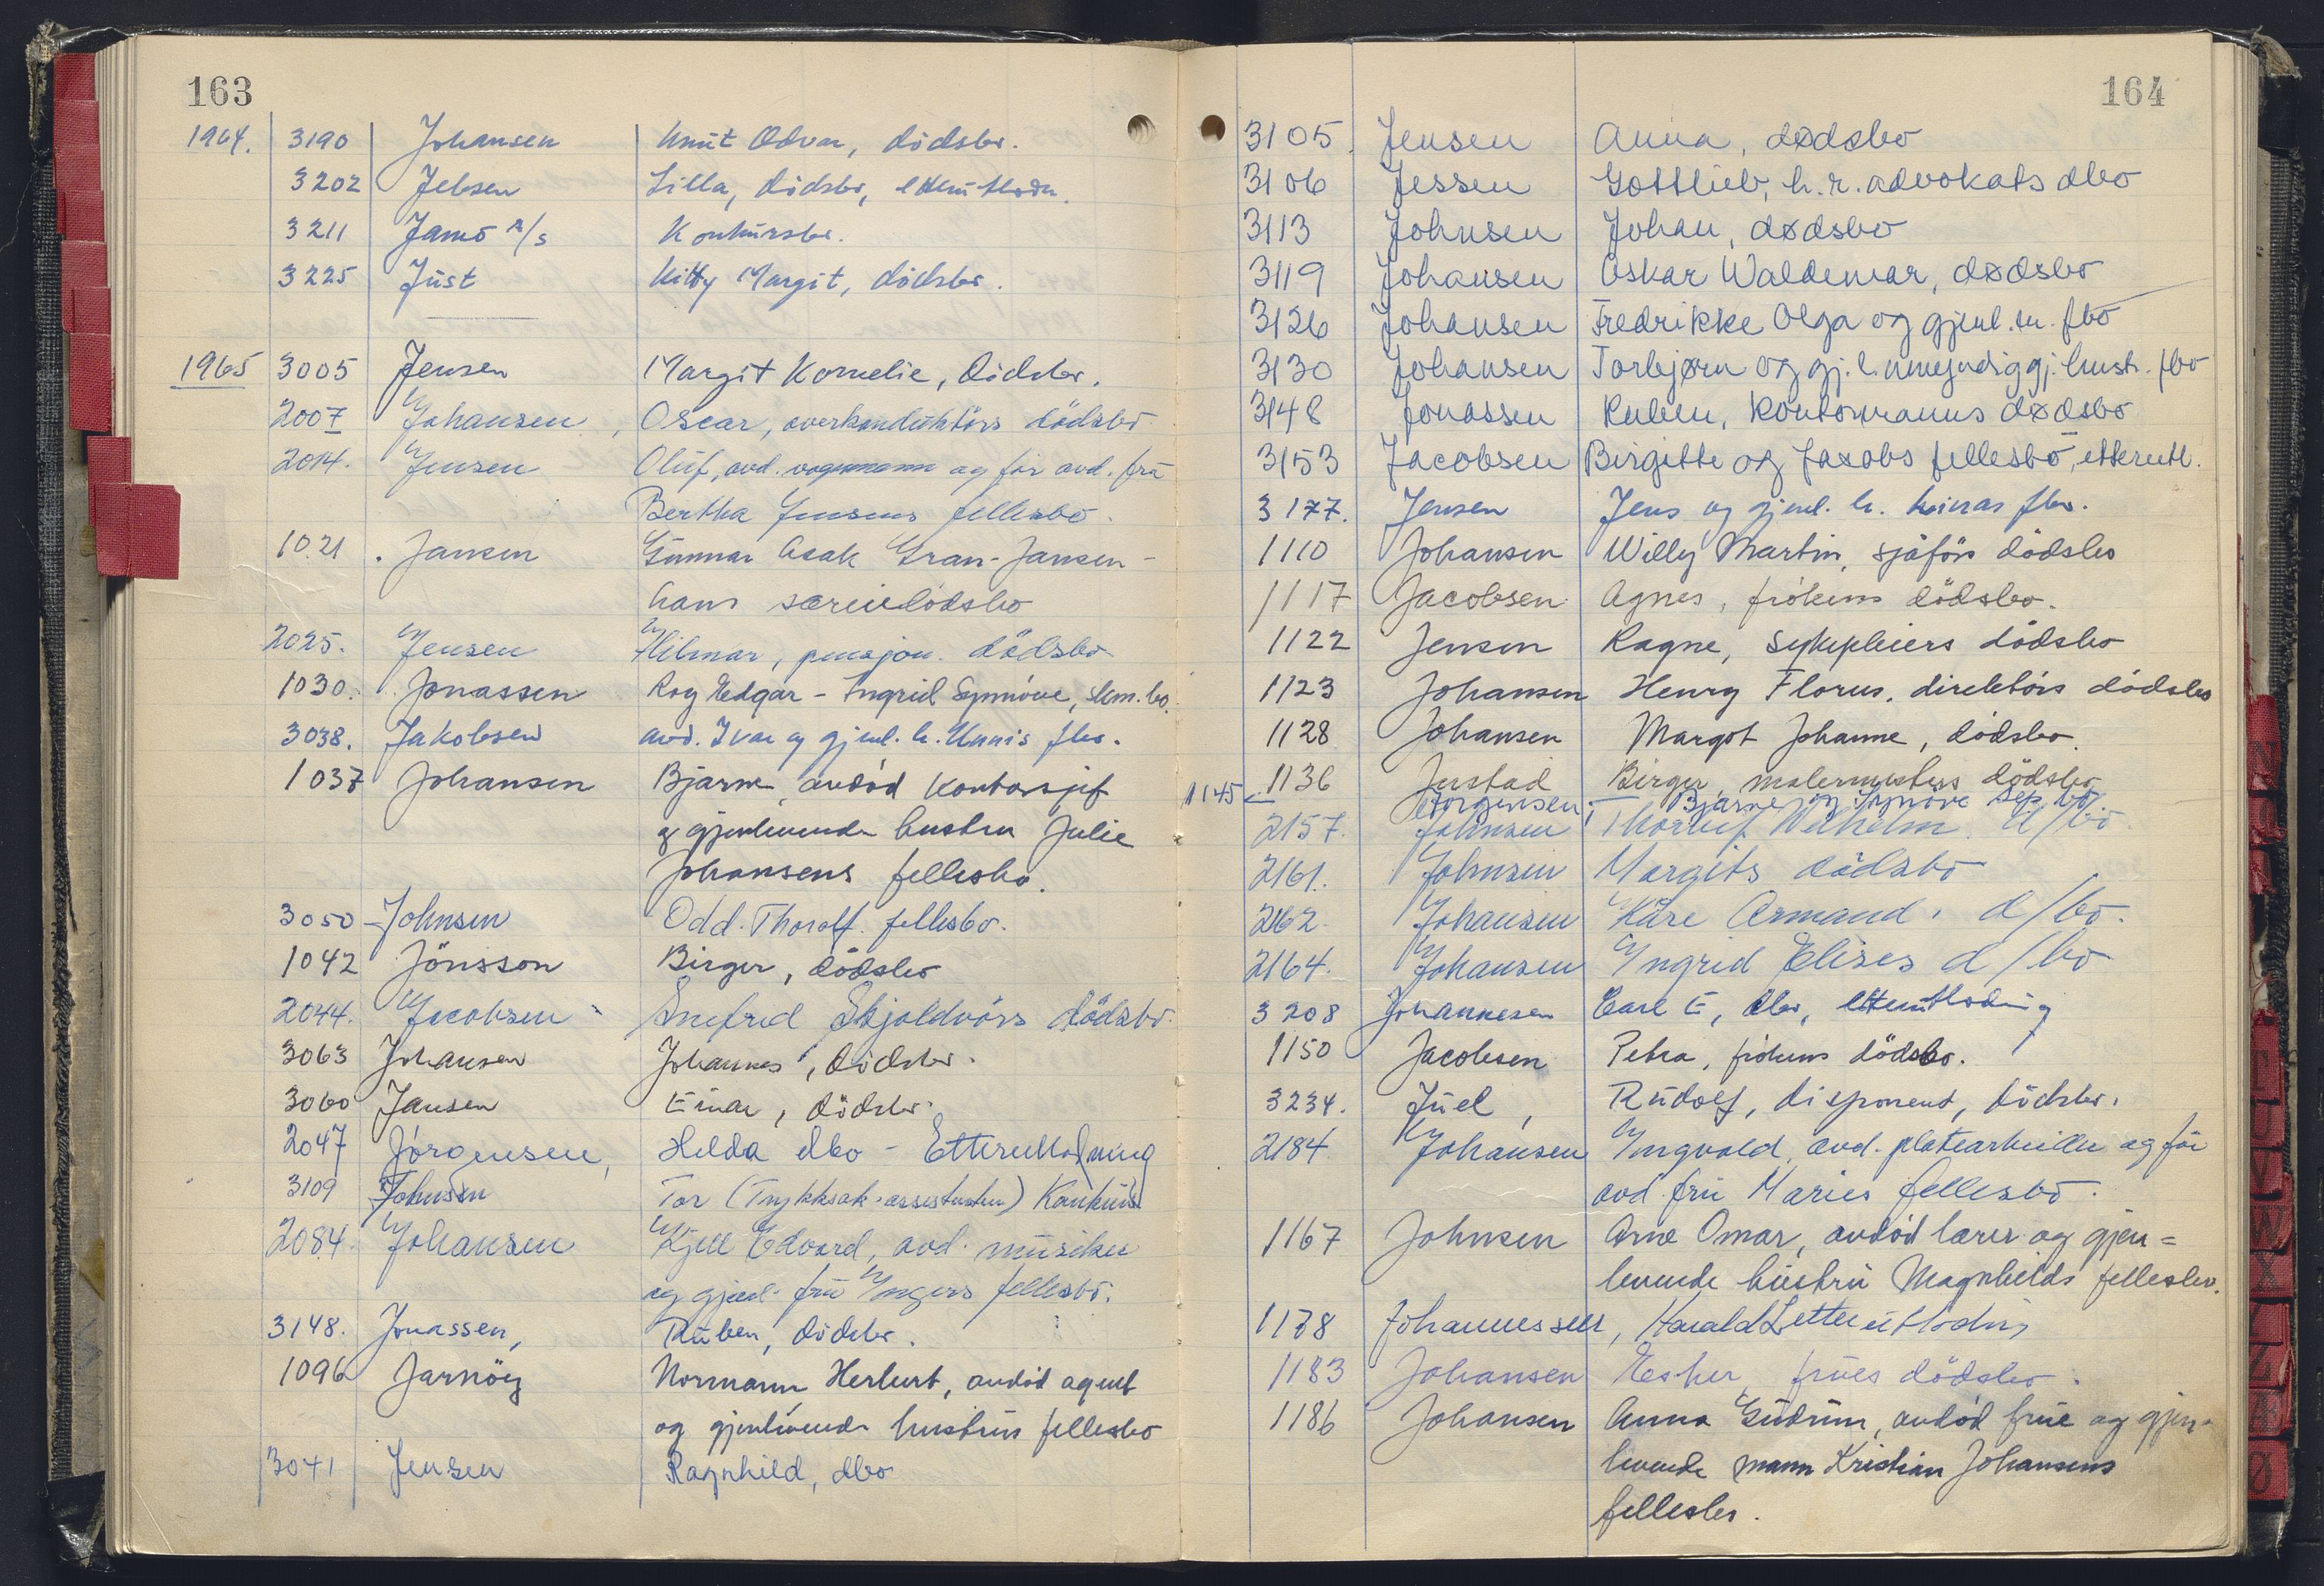 163
1964. 3190 Johansen Knut Odvar, dödsbo.
3202 Jebsen Lilla, dödsbo, etterutlodn.
3211 Jamo A/S Konkursbo.
3225 Just Kitty Margit, dödsbo.
1965 3005 Jensen Margit Kornelie, dödsbo.
2007 Johansen, Oscar, overkonduktörs dödsbo
2014. Jensen Oluf, avd. vognmann og før avd. fru
Bertha Jensens fellesbo.
1021. Jansen Gunnar Asak Gran-Jansen -
hans særiedödsbo
2025. Jensen Hilmar, pensjon. dödsbo
1030. Jonassen Roy Edgar - Ingrid Synnöve, sem. bo.
3038. Jakobsen avd. Ivar og gjenl. h. Unnis fbo.
1037 Johansen Bjarne, avdöd kontorsjef
og gjenlevende hustru Julie
Johansens fellesbo.
3050 - Johnsen Odd. Thoralf. fellesbo.
1042 Jönsson Birger, dödsbo
2044. Jacobsen Snefred Skjoldvörs dödsbo.
3063 Johansen Johannes, dödsbo.
3060 Jansen Einar, dödsbo.
2047 Jörgensen, Helda dbo - Etterutlodning
3109 Johnsen Tor (Trykksak-assistenten) Konkurs
2084. Johansen Kjell Edvard, avd. musiker
og gjenl. fru Yngers fellesbo.
3148. Jonassen, Ruben, dödsbo.
1096 Jarnöy Normann Herbert, avdöd agent
og gjenlevende hustrus fellesbo
3041 Jensen Ragnhild, dbo
164
3105. Jensen Anna, dødsbo
3106 Jessen Gottlieb, h.r. advokats dbo
3113 Johnsen Johan, dødsbo
3119 Johansen Oskar Waldemar, dødsbo
3126 Johansen Fredrikke Olga og gjenl. m. fbo
3130 Johansen Torbjørn og gj. l. umyndiggj. hustr. fbo
3148 Jonassen Ruben, kontormanns dødsbo
3153 Jacobsen Birgitte og Jacobs fellesbo, etterutl.
3177. Jensen Jens og gjenl. h. fbo.
1110 Johansen Willy Martin, sjåförs dödsbo
1117 Jacobsen Agnes, frökens dödsbo.
1122 Jensen Ragne, sykepleiers dödsbo
1123 Johansen Henry Florus, direktörs dödsbo
1128 Johansen Margot Johanne, dödsbo.
1136 Justad Birger, malermesters dödsbo
1145 Jörgensen, Bjarne og Synnöve sep. bo.
2157. Johnsen Thorleif Wilhelm. d/bo.
2161. Johnsen Margits dödsbo
2162. Johansen Kåre Armand. d/bo.
2164. Johansen Yngrid Elises d/bo
3208 Johannesen Carl E, dbo, etterutlodning
1150 Jacobsen Petra, frökens dödsbo.
3234. Juel, Rudolf, disponent, dödsbo.
2184. Johansen Yngvald, avd. platearbeider og før
avd. fru Maries fellesbo.
1167 Johnsen Arne Omar, avdöd lærer og gjen=
levende hustru Magnhilds fellesbo.
1178 Johannessen, Harald L etterutlodning
1183 Johansen Esther, frues dödsbo.
1186 Johansen Anna Gudrun, avdöd frue og gjen-
levende mann Kristian Johansens
fellesbo.